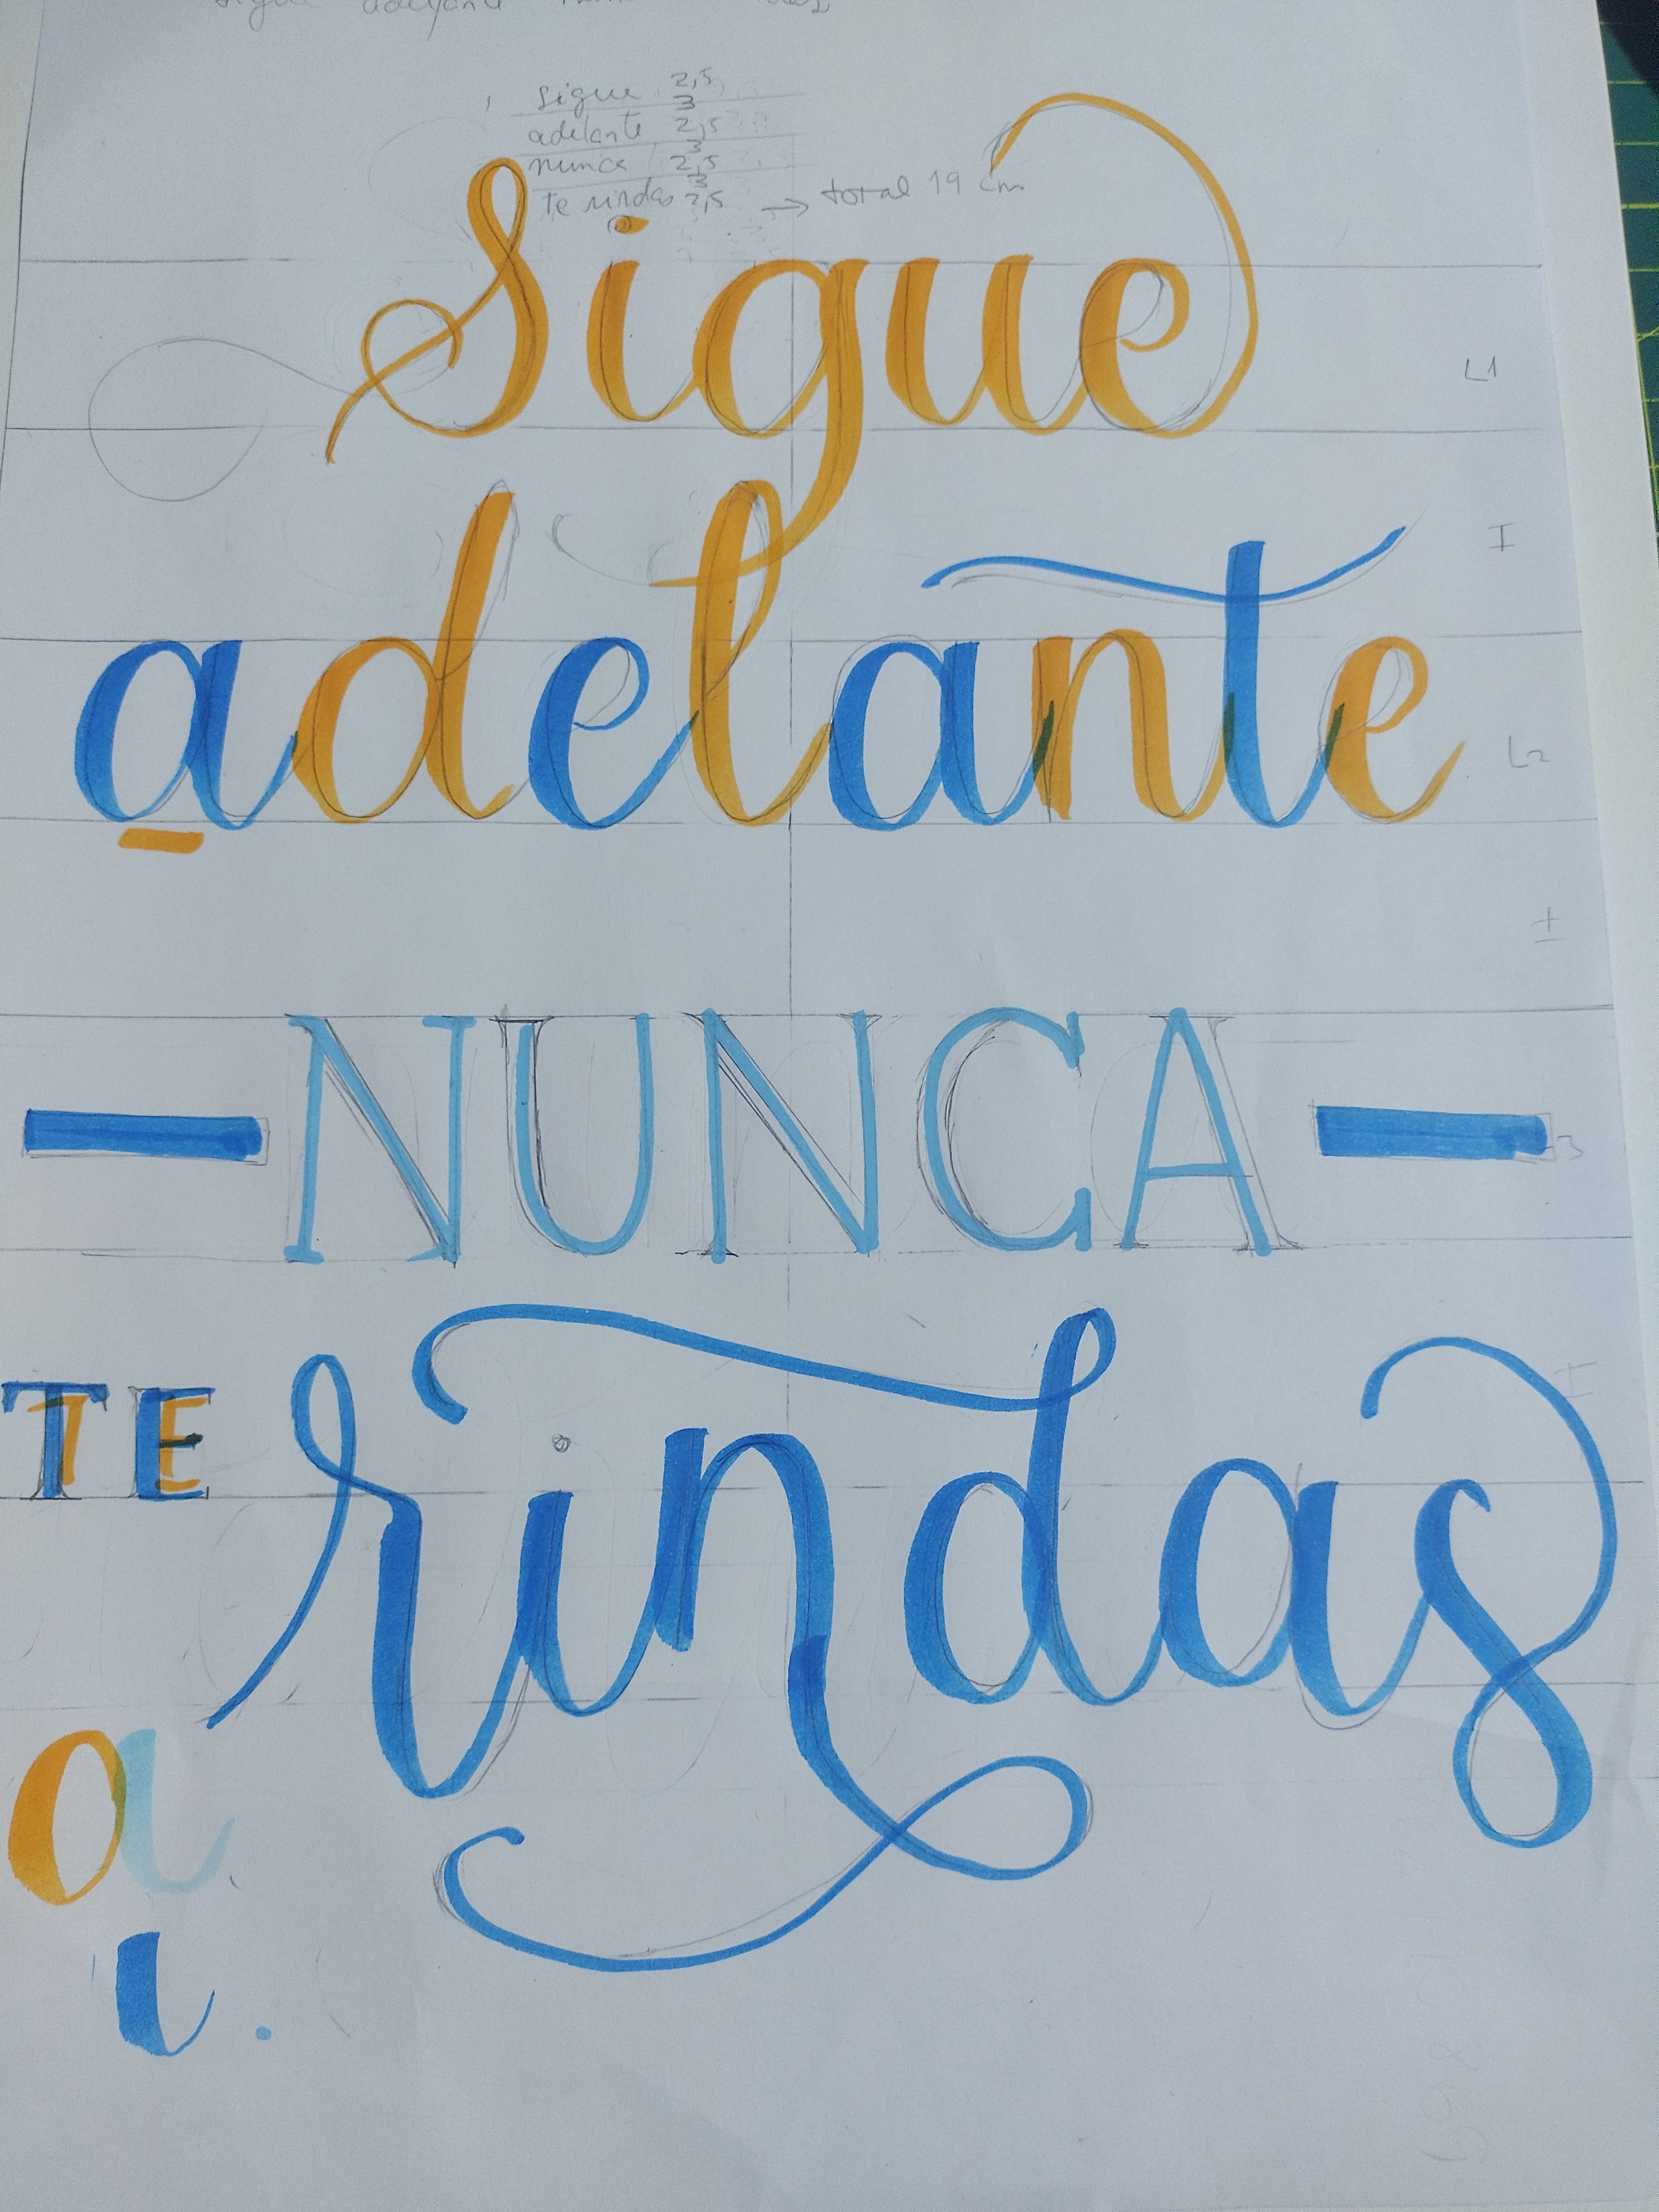 sigue adelante
sigue 2,5
3
adelante 2,5
3
nunca 2,5
3
te rindas 2,5 → total 19 cm
Sigue
L1
I
adelante
L2
I
— NUNCA —
3
I
TE rindas
a
i